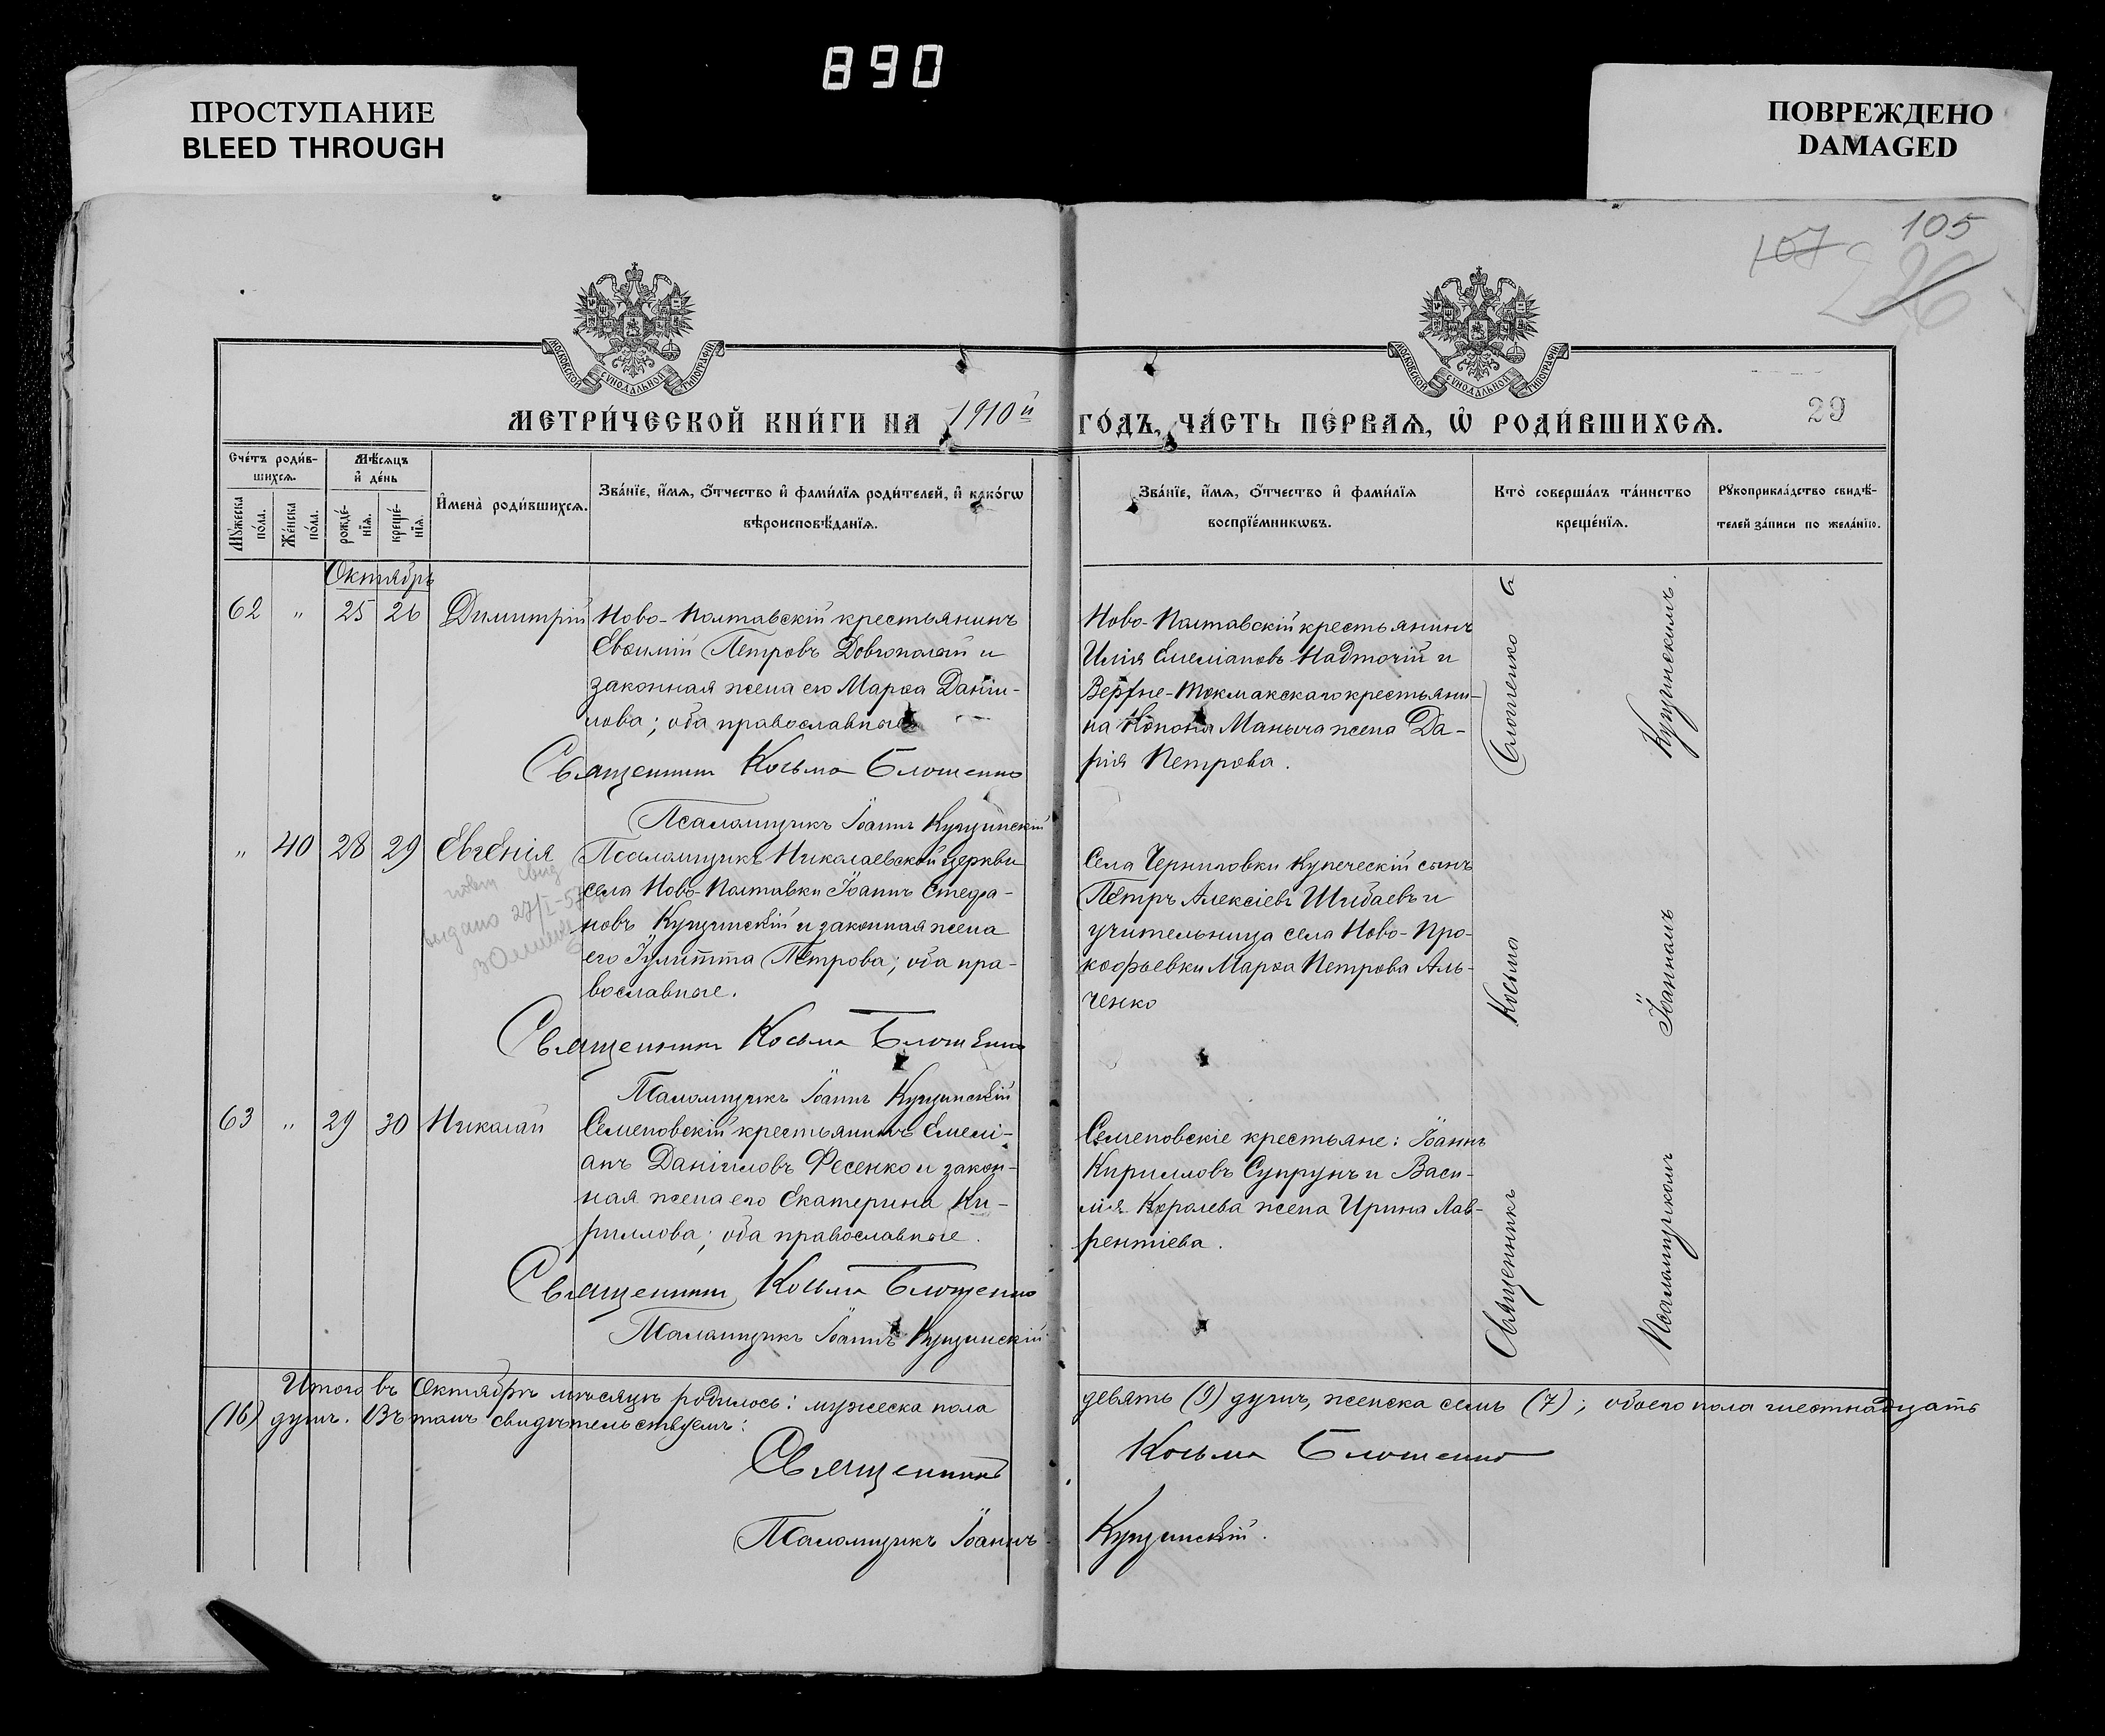 890
ПРОСТУПАНИЕ
BLEED THROUGH
ПОВРЕЖДЕНО
DAMAGED
105
107
226
МОСКОВСКОЙ СУНОДАЛЬНОЙ ТИПОГРАФІИ
МОСКОВСКОЙ СУНОДАЛЬНОЙ ТИПОГРАФІИ
МЕТРИ́ЧЕСКОЙ КНИ́ГИ НА 1910й ГО́ДЪ, ЧА́СТЬ ПЕ́РВАЯ, Ѽ РОДИ́ВШИХСЯ.
29
Сче́тъ роди́в-
шихся.
Мꙋ́жеска по́ла.
Же́нска по́ла.
Мѣ́сяцъ
и҆ де́нь
рожде́-
нїя.
креще́-
нїя.
И҆мена̀ роди́вшихся.
Зва́нїе, и҆́мя, ѻ҆́тчество и҆ фами́лїя роди́телей, и҆ како́гѡ
вѣроисповѣ́данїя.
Зва́нїе, и҆́мя, ѻ҆́тчество и҆ фами́лїя
воспрїе́мникѡвъ.
Кто̀ соверша́лъ та́инство
креще́нїя.
Рꙋкоприкла́дство свидѣ́-
телей за́писи по жела́нїю.
Октябрь
62 " 25 26 Димитрій
Ново-Полтавскій крестьянинъ
Евѳимій Петровъ Довгополый и
законная жена его Марѳа Даніи-
лова; оба православные
Священникъ Косьма Блошенко
Псаломщикъ Іоаннъ Кущинскій
Ново-Полтавскій крестьянинъ
Илія Емеліановъ Надточій и
Верхне-Токмакскаго крестьяни-
на Конона Маныча жена Да-
рія Петрова.
" 40 28 29 Евгенія
повт свид
выдано 27/I-57
Псаломщикъ Николаевской церкви
села Ново-Полтавки Іоаннъ Стефа-
новъ Кущинскій и законная жена
его Іулитта Петрова; оба пра-
вославные.
Священникъ Косьма Блошенко
Псаломщикъ Іоаннъ Кущинскій
Села Черниговки купеческій сынъ
Петръ Алексіевъ Шибаевъ и
учительница села Ново-Про-
кофьевки Марѳа Петрова Аль-
ченко
63 " 29 30 Николай
Семеновскій крестьянинъ Емелі-
анъ Даніиловъ Фесенко и закон-
ная жена его Екатерина Ки-
риллова; оба православные.
Священникъ Косьма Блошенко
Псаломщикъ Іоаннъ Кущинскій
Семеновскіе крестьяне: Іоаннъ
Кирилловъ Супрунъ и Васи-
лія Королева жена Ирина Лав-
рентіева.
Священникъ Косьма Блошенко съ
Псаломщикомъ Іоанномъ Кущинскимъ.
Итого въ Октябрѣ мѣсяцѣ родилось: мужеска пола девять (9) душъ, женска семь (7); обоего пола шестнадцать
(16) душъ. Въ томъ свидѣтельствуемъ:
Священникъ Косьма Блошенко
Псаломщикъ Іоаннъ Кущинскій.